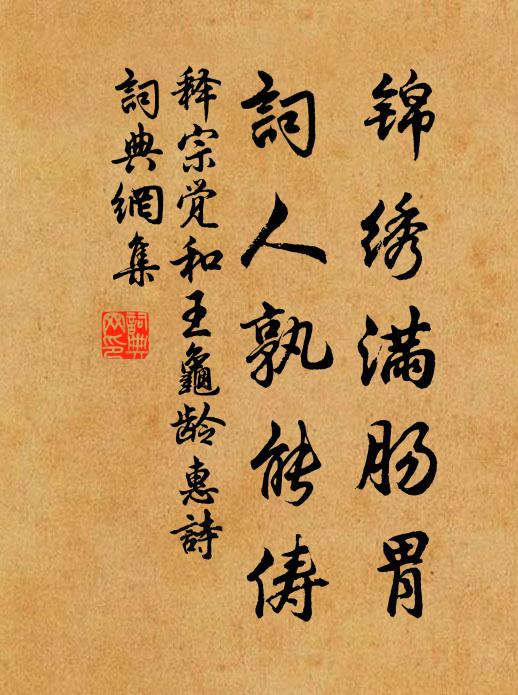 锦绣满肠胃
詞人孰能俦
释宗觉和王龜龄惠詩
詞典網集
詞典网印